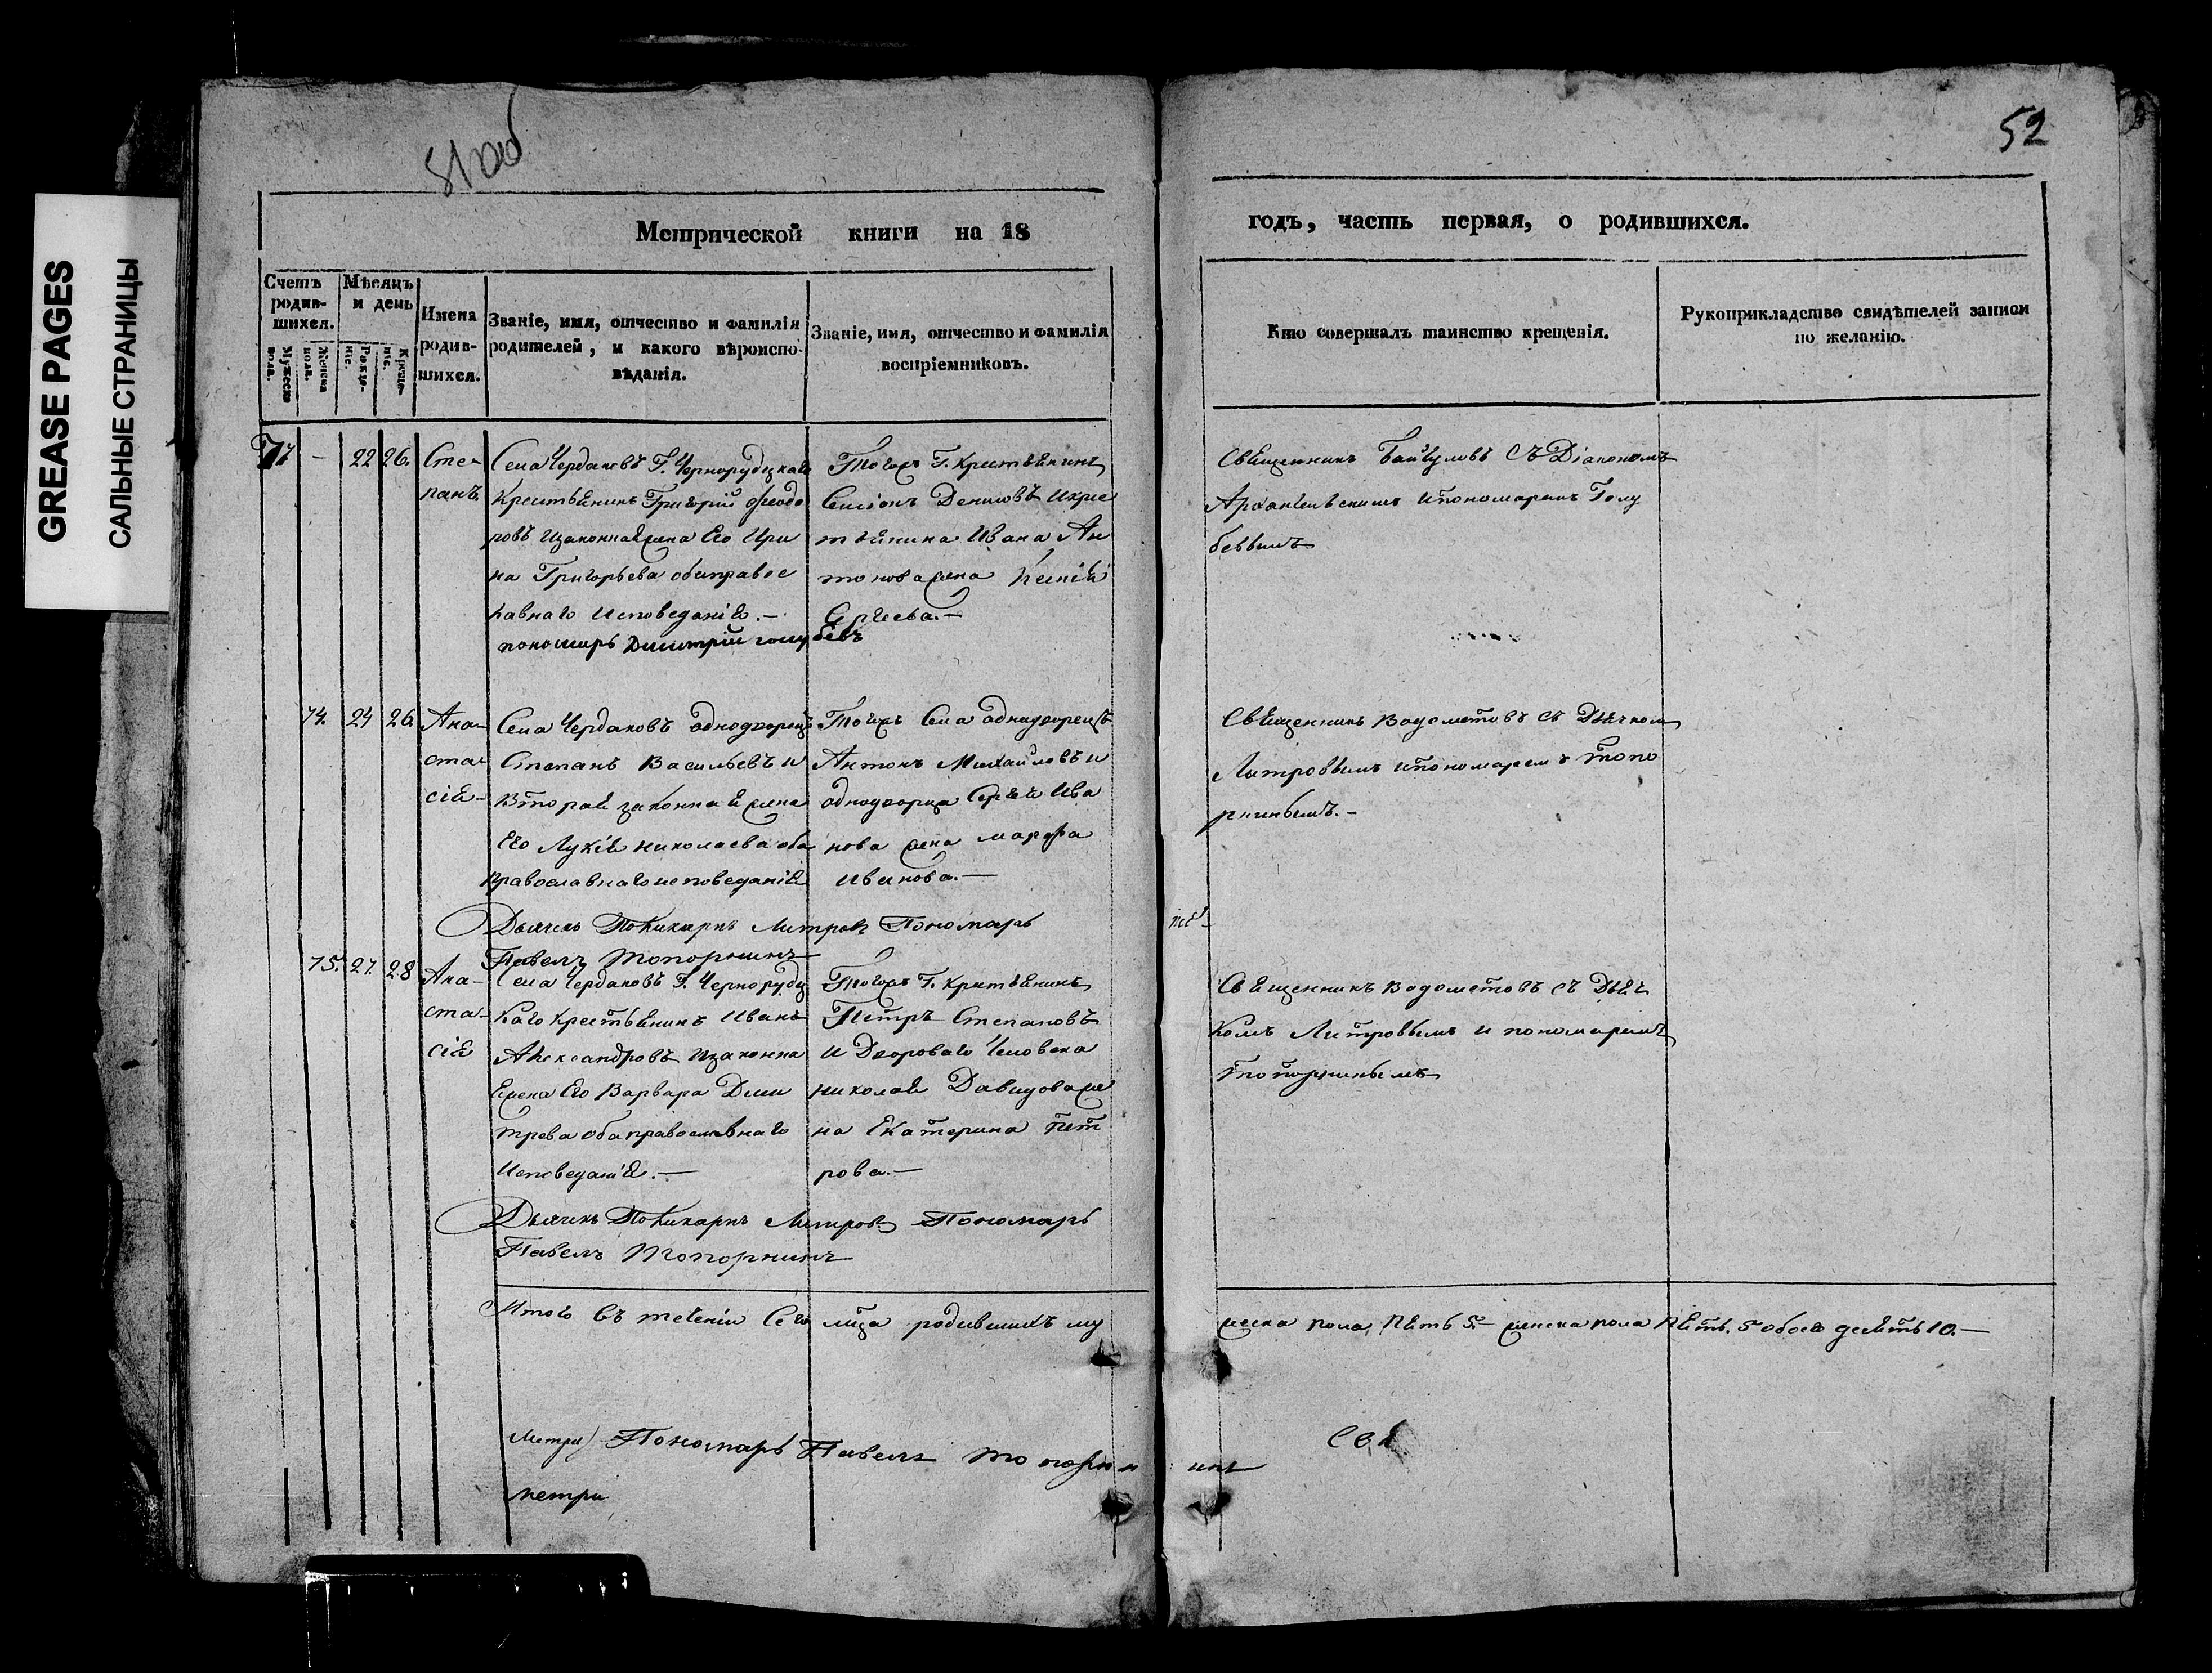 GREASE PAGES
САЛЬНЫЕ СТРАНИЦЫ
51 об
52
Метрической книги на 18
годъ, часть первая, о родившихся.
Счетъ родившихся.
Мужеска пола.
Женска пола.
Мѣсяцъ и день
Рожденіе.
Крещеніе.
Имена родившихся.
Званіе, имя, отчество и фамилія
родителей, и какого вѣроиспо-
вѣданія.
Званіе, имя, отчество и фамилія
воспріемниковъ.
Кто совершалъ таинство крещенія.
Рукоприкладство свидѣтелей записи
по желанію.
- 22 26. Сте-
панъ
Села Чердаковъ Г. Чернорудцкаго
Крестьянинъ Григорій Феодо
ровъ изаконная жена Его Ири
на Григорьева оба правос
лавнаго исповеданія.-
пономарь Димитрій голубевъ
Тогожъ Г. Крестьянинъ
Симіонъ Даниловъ икрес
тьянина Ивана Ан
тонова жена
Сергеева.-
Священникъ Байгуловъ Съ Діакономъ
Архангельскимъ ипономаремъ Голу
бевымъ
74. 24 26. Ана-
ста-
сія-
Села Чердаковъ однодворецъ
Степанъ Васильевъ и
вторая законная жена
Его Лукія николаева оба
православнаго исповеданія
Тогожъ Села однодворецъ
Антонъ Михайловъ и
однодворца Сергея Ива
нова жена марфа
иванова.-
Священникъ Водолетовъ съ Дьячкомъ
Литровымъ ипономаремъ Топо
рнинымъ.-
Дьячекъ Поликарпъ Литровъ Пономарь
Павелъ Топорнинъ
75. 27. 28 Ана-
ста-
сія
Села Чердаковъ Г. Чернорудц
каго крестьянинъ Иванъ
Александровъ изаконна
я жена Его Варвара Дми
трева оба православнаго
Исповеданія.-
Тогожъ Г. Крестьянинъ
Петръ Степановъ
и Двороваго Человека
николая Давидова же
на Екатерина Пет
рова.-
Священникъ Водолетовъ съ Дьяч
комъ Литровымъ и пономаремъ
Топорнинымъ
Дьячекъ Поликарпъ Литровъ Пономарь
Павелъ Топорнинъ
Итого Въ течении Сего мца родившихъ му
жеска пола пять 5.- женска пола пять. 5 обоего десять 10.-
Пономарь Павелъ Топорнинъ